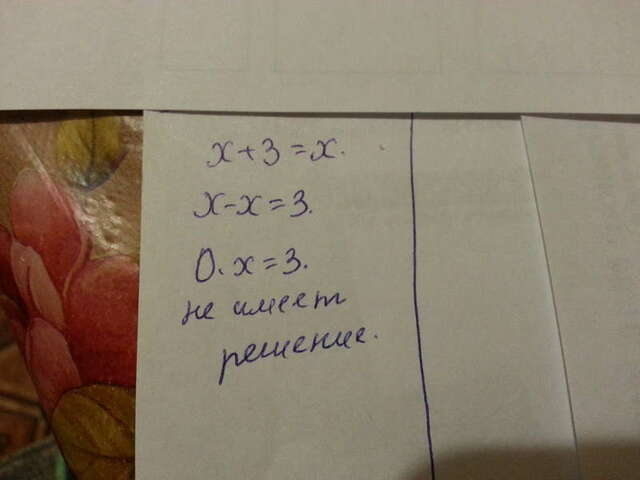 x+3=x.
x-x=3.
0.x=3.
не имеет
решение.